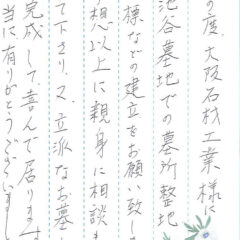 の度、大阪石材工業様に
池谷墓地での墓所整地
標などの建立をお願い致しま
想以上に親身に相談
て下さり、又、立派なお墓
完成して喜んで居ります
当に有りがとうございまし